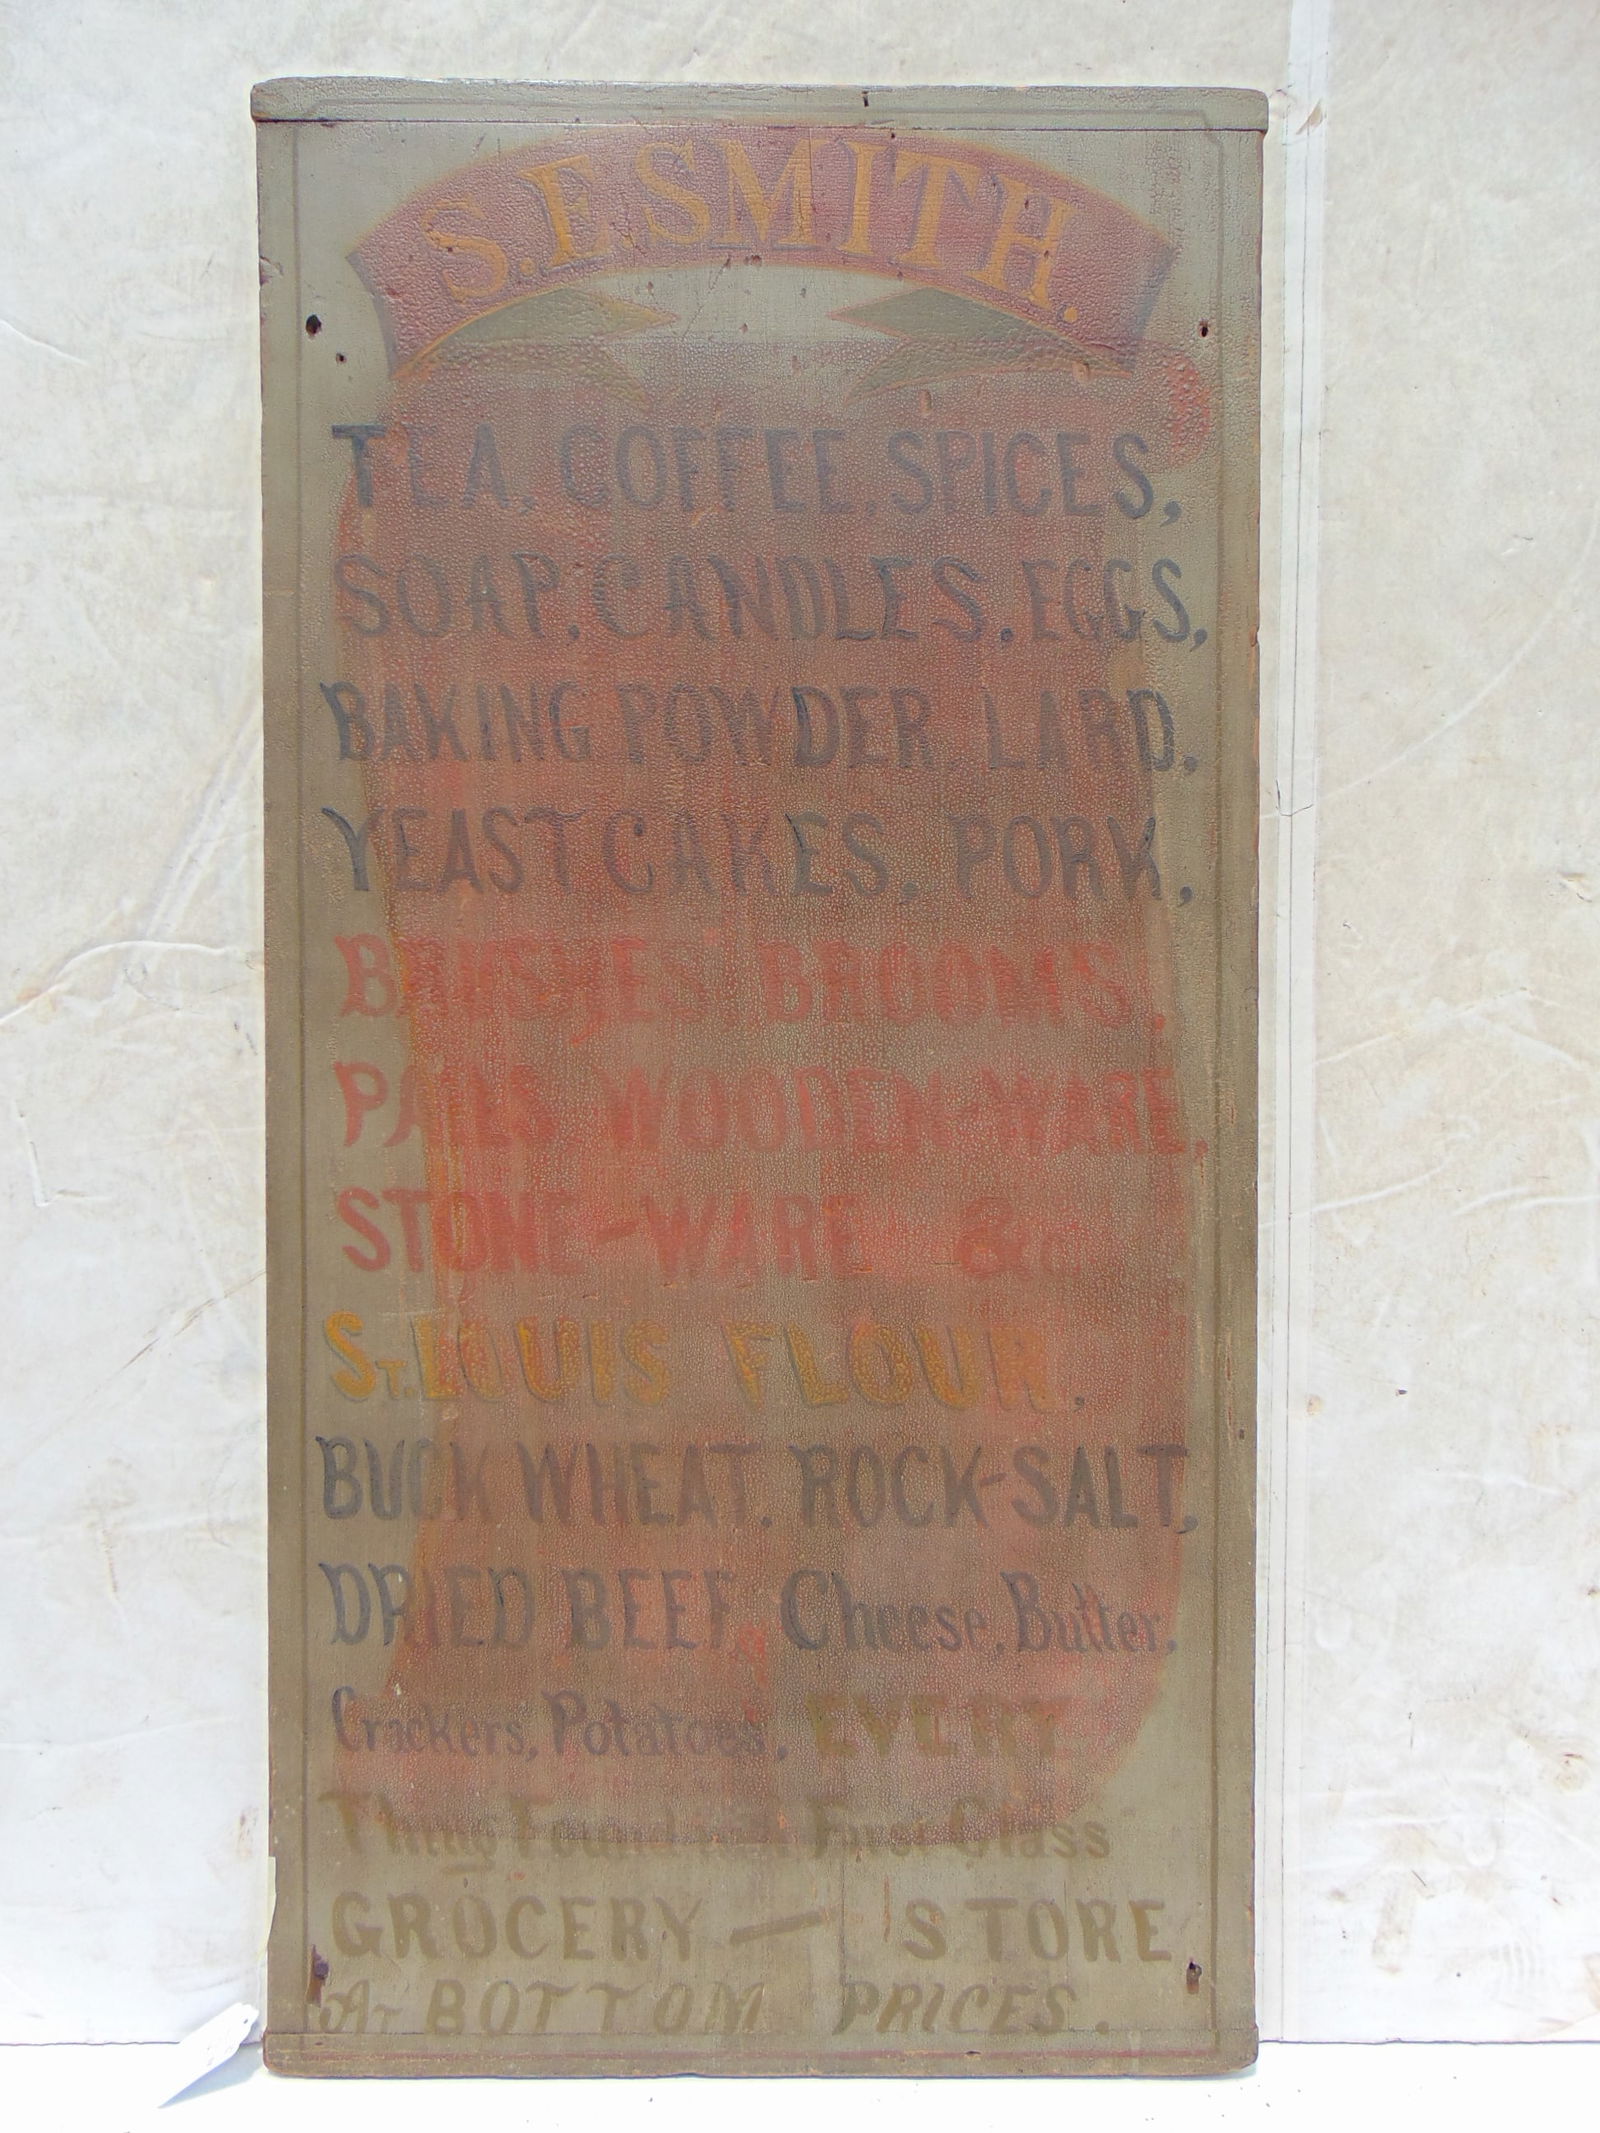 S.E.SMITH.
TEA, COFFEE, SPICES,
SOAP, CANDLES, EGGS,
BAKING POWDER, LARD,
YEAST CAKES, PORK,
BRUSHES, BROOMS,
PAILS, WOODEN-WARE,
STONE-WARE &c
ST. LOUIS FLOUR,
BUCKWHEAT, ROCK-SALT,
DRIED BEEF, Cheese, Butter,
Crackers, Potatoes, EVERY
Thing Found in A First Class
GROCERY — STORE
AT BOTTOM PRICES.